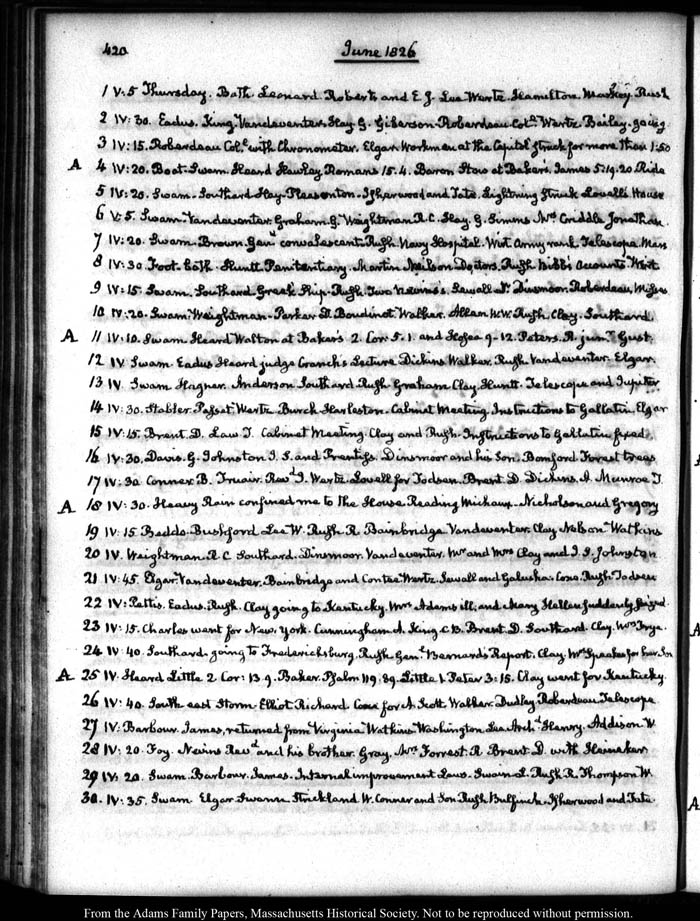 420
June 1826
1 V:5 Thursday. Bath. Leonard Roberts and E. J. Lee Wertz. Hamilton. Rush
2 IV:30. Eadus. King. Vandeventer. Hay G. Giberson. Roberdeau Colo. Wertz. Bailey. going
3 IV:15. Roberdeau Col. with Chronometer. Elgar. Workmen at the Capitol struck for more than 1:50
A 4 IV:20. Boat. Swam. Heard Hawley Romans 15.4. Baron Stow at Bakers. James 5.19.20 Ride
5 IV:20. Swam. Southard. Hay. Pleasonton. Isherwood and Tate. Lightning struck Lovell's House
6 V:5. Swam. Vandeventer. Graham G. Weightman R. C. Hay. G. Simms. Mrs Criddle Jonathan.
7 IV:20. Swam. Brown Genl. convalescent. Rush. Navy Hospital. Wirt. Army rank. Telescope Man
8 IV:30 Foot-bath. Huntt. Penitentiary. Martin. Doctors. Rush. Accounts Wirt
9 IV:15. Swam. Southard Greek Ship. Rush. Two Nevins's. Sewall Dr. Dinsmoor. Roberdeau, Misses
10 IV:20. Swam. Weightman. Parker D. Boudinot. Walker. Allan W.W. Rush. Clay. Southard.
A 11 IV:10. Swam. Heard Walton at Baker's 2. Cor: 5.1. and Hosea 9-12. Peters. R. junr. Gust.
12 IV Swam. Eadus. Heard judge Cranch's Lecture. Dickins. Walker. Rush. Vandeventer. Elgar.
13 IV. Swam. Hagner. Anderson. Southard. Rush. Graham. Clay. Huntt. Telescope and Jupiter
14 IV:30. Stabler. Wertz. Burch. Harleston. Cabinet Meeting. Instructions to Gallatin. Elgar
15 IV:15. Brent. D. Law T. Cabinet Meeting. Clay and Rush. Instructions to Gallatin fixed.
16 IV:30. Davis. G. Johnston I. S. and Prentiss. Dinsmoor and his Son. Bomford. Forest trees
17 IV:30 Conner B. Truair. Revd. J. Wertz. Lovell for Todsen. Brent. D. Dickins. A. Munroe. T.
A 18 IV:30. Heavy Rain confined me to the House. Reading Michaux. Nicholson and Gregory
19 IV:15 Beddo. Bushford. Lee W. Rush. R. Bainbridge. Vandeventer. Clay. Nelson. Watkins
20 IV. Weightman. R C Southard. Dinsmoor. Vandeventer. Mr and Mrs Clay and J. S. Johnston
21 IV:45. Elgar. Vandeventer. Bainbridge and Contee. Wertz. Sewall and Galusha. Coxe. Rush. Todsen
22 IV: Pettis. Eadus. Rush. Clay going to Kentucky. Mrs Adams ill, and Mary Hellen suddenly seized
23 IV:15. Charles went for New York. Cunningham. A. King C B. Brent. D. Southard. Clay. Mrs Frye.
24 IV:40. Southard. going to Fredericksburg. Rush. Genl. Bernard's Report. Clay. Mrs Speake for her Son
A 25 IV: Heard Little 2 Cor: 13.9. Baker. Psalm 119:89. Little 1. Peter 3:15. Clay went for Kentucky.
26 IV:40. South east Storm. Elliot Richard. Coxe for A Scott. Walker. Dudley. Roberdeau Telescope
27 IV: Barbour. James, returned from Virginia. Watkins. Washington. Lee. Archd. Henry. Addison W
28 IV:20. Foy. Nevins Revd. and his brother. Gray. Mrs Forrest. R. Brent. D. with Heineken
29 IV:20. Swam. Barbour. James. Internal improvement Laws. Swann. Rush R. Thompson W
30. IV:35. Swam. Elgar. Swann. Strickland W. Conner and Son. Rush. Bulfinch. Isherwood and Tate.
From the Adams Family Papers, Massachusetts Historical Society. Not to be reproduced without permission.